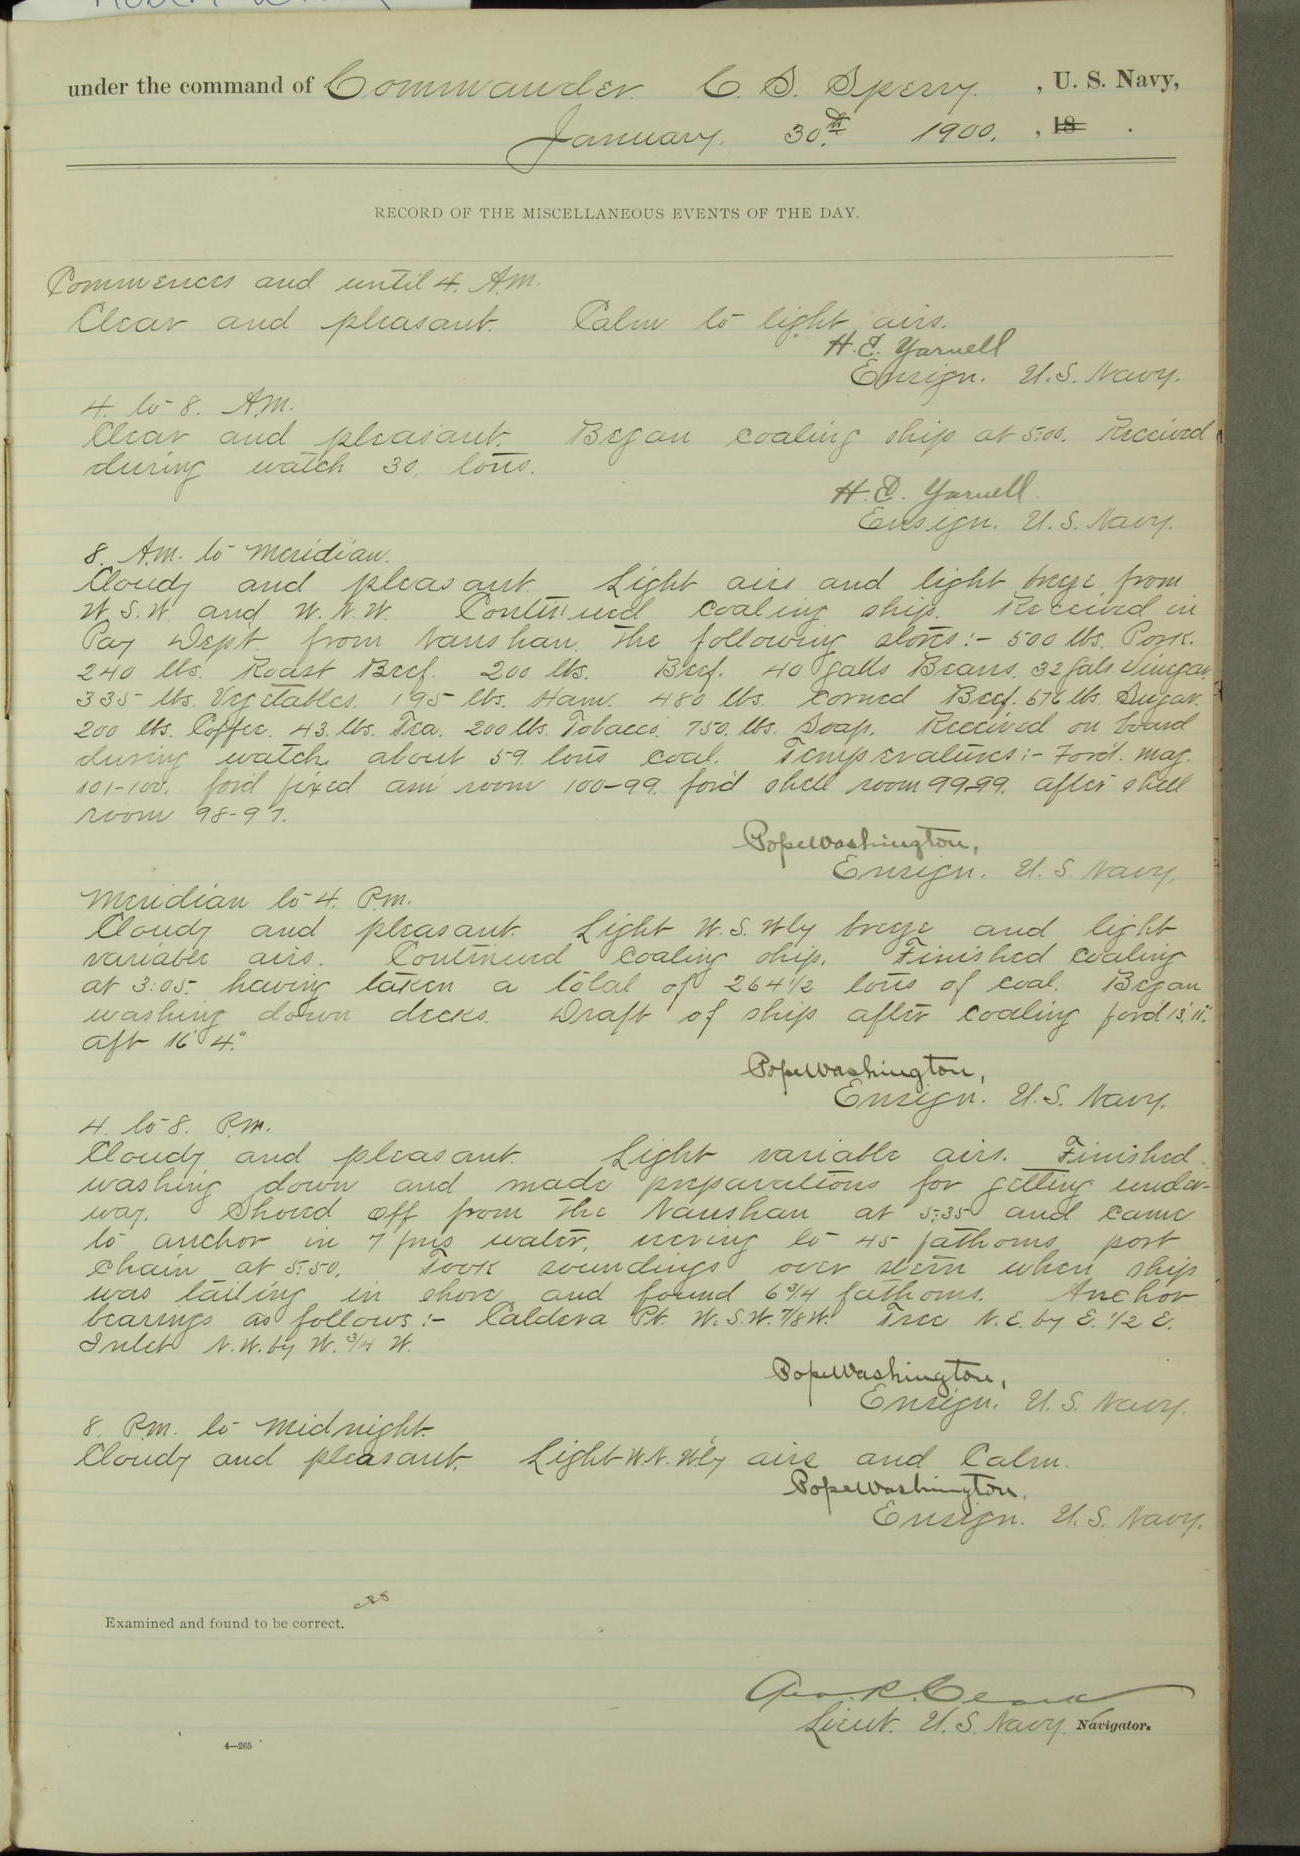 under the command of Commander C. S. Sperry. , U. S. Navy,
January. 30th. 1900. , 18 .
RECORD OF THE MISCELLANEOUS EVENTS OF THE DAY.
Commences and until 4. A.M.
Clear and pleasant. Calm to light airs.
H. E. Yarnell
Ensign. U.S. Navy.
4. to 8. A.M.
Clear and pleasant. Began coaling ship at 5:00. Received
during watch 30. tons.
H. E. Yarnell.
Ensign. U.S. Navy.
8. A.M. to Meridian.
Cloudy and pleasant. Light airs and light breeze from
W.S.W. and W.N.W. Continued coaling ship. Received in
Pay Dep't. from Nanshan. the following stores:- 500 lbs. Pork.
240 lbs. Roast Beef. 200 lbs. Beef. 40 galls Beans. 32 gals Vinegar.
335 lbs. Vegetables. 195 lbs. Ham. 480 lbs. Corned Beef. 676 lbs. Sugar.
200 lbs. Coffee. 43. lbs. Tea. 200 lbs. Tobacco. 750. lbs. Soap. Received on board
during watch about 59. tons coal. Temperatures:- For'd. mag.
101-100. for'd fixed am room 100-99. for'd shell room 99-99. after shell
room 98-97.
Pope Washington,
Ensign. U. S. Navy.
Meridian to 4. P.M.
Cloudy and pleasant. Light W.S.W'ly breeze and light
variable airs. Continued coaling ship. Finished coaling
at 3:05. having taken a total of 264 1/2 tons of coal. Began
washing down decks. Draft of ship after coaling for'd 13' 11".
aft 16' 4".
Pope Washington,
Ensign. U.S. Navy.
4. to 8. P.M.
Cloudy and pleasant. Light variable airs. Finished
washing down and made preparations for getting under-
way. Shoved off from the Nanshan at 5:35 and came
to anchor in 7 fms water, veering to 45 fathoms port
chain at 5:50. Took soundings over stern when ship
was tailing in shore and found 6 3/4 fathoms. Anchor
bearings as follows:- Caldera Pt. W.S.W. 7/8 W. Tree N.E. by E. 1/2 E.
Inlet N.W. by W. 3/4 W.
Pope Washington,
Ensign. U.S. Navy.
8. P.M. to Midnight.
Cloudy and pleasant. Light W.N.W'ly airs and Calm.
Pope Washington.
Ensign. U.S. Navy.
Examined and found to be correct.
Geo. R. Clark
Lieut. U.S. Navy. Navigator.
4—265